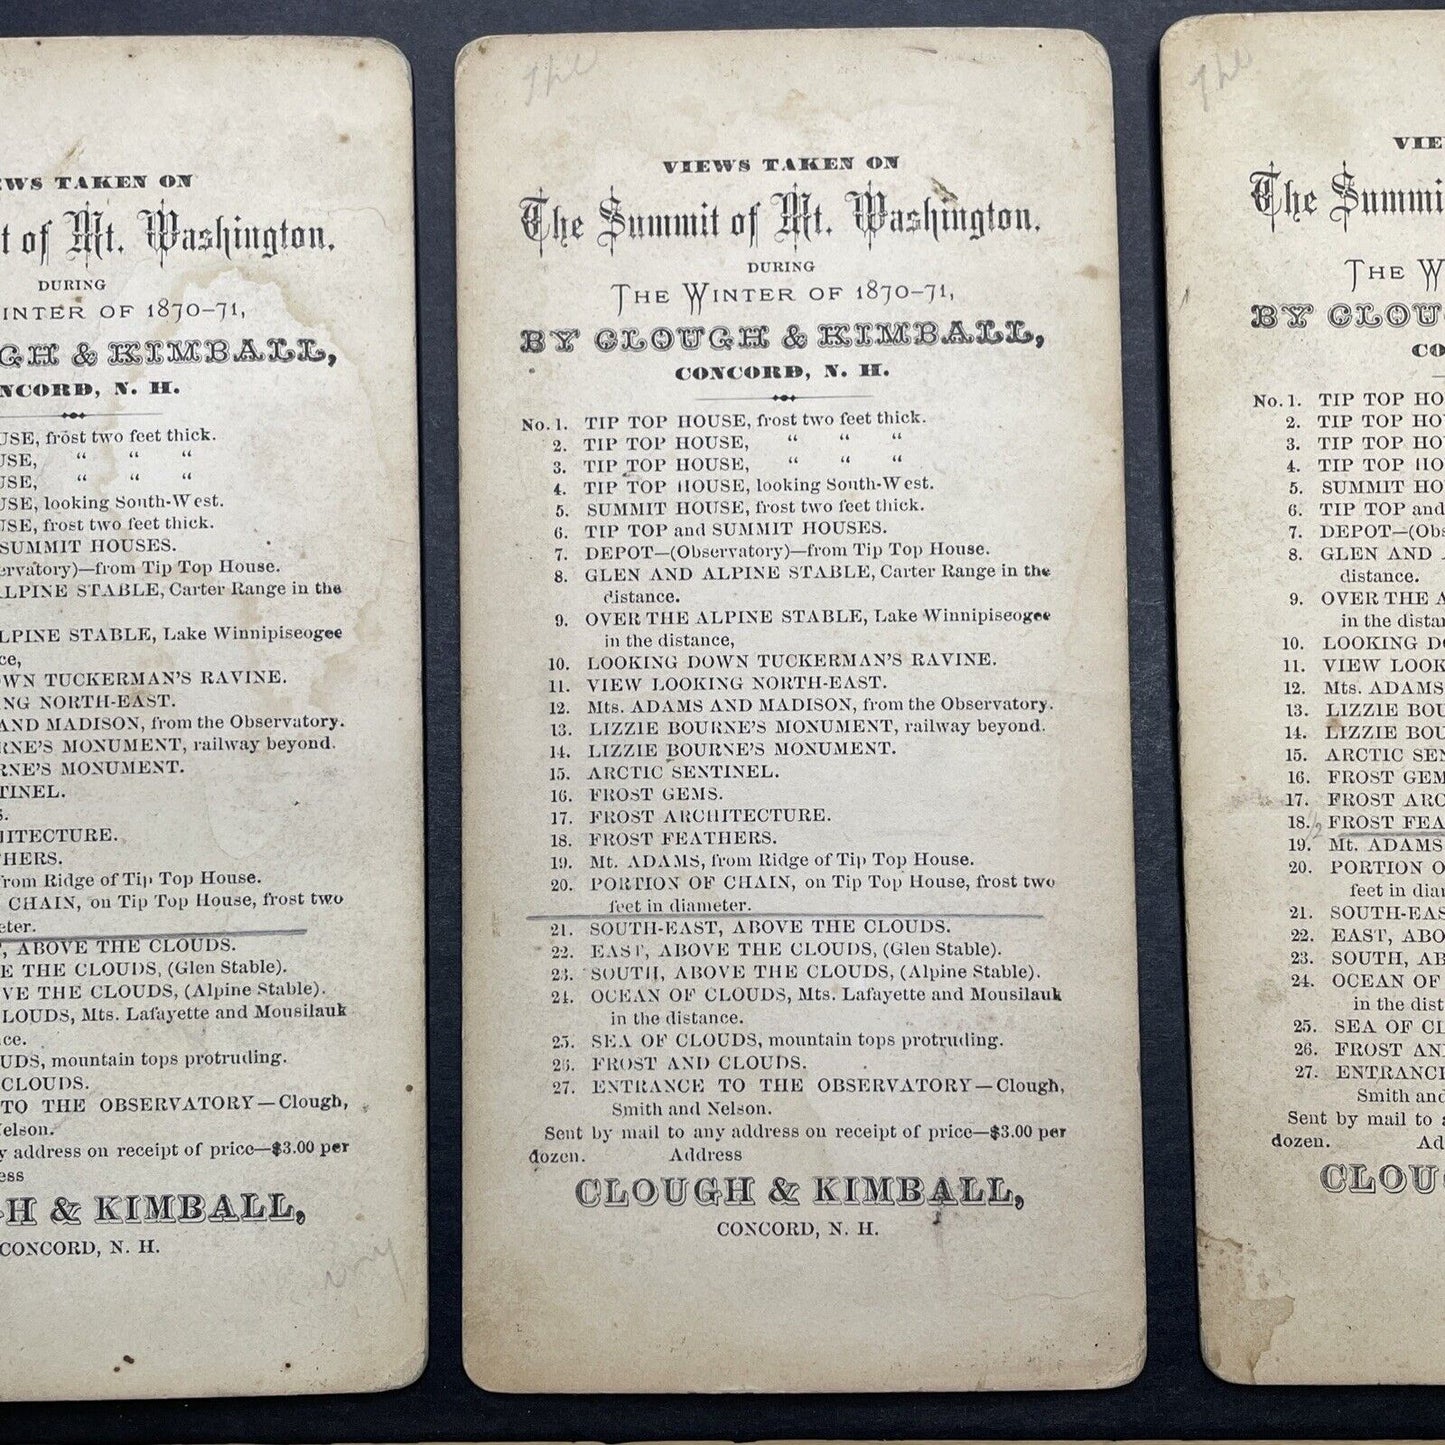 EWS TAKEN ON
t of Mt. Washington.
DURING
INTER OF 1870-71,
GH & KIMBALL,
NCORD, N. H.
USE, frost two feet thick.
USE, “ “ “
USE, “ “ “
USE, looking South-West.
USE, frost two feet thick.
SUMMIT HOUSES.
ervatory)—from Tip Top House.
ALPINE STABLE, Carter Range in the
ALPINE STABLE, Lake Winnipiseogee
ce,
OWN TUCKERMAN'S RAVINE.
NG NORTH-EAST.
AND MADISON, from the Observatory.
RNE'S MONUMENT, railway beyond.
RNE'S MONUMENT.
TINEL.
S.
HITECTURE.
HERS.
from Ridge of Tip Top House.
CHAIN, on Tip Top House, frost two
eter.
, ABOVE THE CLOUDS.
E THE CLOUDS, (Glen Stable).
VE THE CLOUDS, (Alpine Stable).
LOUDS, Mts. Lafayette and Mousilauk
ce.
UDS, mountain tops protruding.
CLOUDS.
TO THE OBSERVATORY—Clough,
Nelson.
y address on receipt of price—$3.00 per
ess
GH & KIMBALL,
CONCORD, N. H.
The
VIEWS TAKEN ON
The Summit of Mt. Washington.
DURING
THE WINTER OF 1870-71,
BY CLOUGH & KIMBALL,
CONCORD, N. H.
No. 1. TIP TOP HOUSE, frost two feet thick.
2. TIP TOP HOUSE, “ “ “
3. TIP TOP HOUSE, “ “ “
4. TIP TOP HOUSE, looking South-West.
5. SUMMIT HOUSE, frost two feet thick.
6. TIP TOP and SUMMIT HOUSES.
7. DEPOT—(Observatory)—from Tip Top House.
8. GLEN AND ALPINE STABLE, Carter Range in the
distance.
9. OVER THE ALPINE STABLE, Lake Winnipiseogee
in the distance,
10. LOOKING DOWN TUCKERMAN'S RAVINE.
11. VIEW LOOKING NORTH-EAST.
12. Mts. ADAMS AND MADISON, from the Observatory.
13. LIZZIE BOURNE'S MONUMENT, railway beyond.
14. LIZZIE BOURNE'S MONUMENT.
15. ARCTIC SENTINEL.
16. FROST GEMS.
17. FROST ARCHITECTURE.
18. FROST FEATHERS.
19. Mt. ADAMS, from Ridge of Tip Top House.
20. PORTION OF CHAIN, on Tip Top House, frost two
feet in diameter.
21. SOUTH-EAST, ABOVE THE CLOUDS.
22. EAST, ABOVE THE CLOUDS, (Glen Stable).
23. SOUTH, ABOVE THE CLOUDS, (Alpine Stable).
24. OCEAN OF CLOUDS, Mts. Lafayette and Mousilauk
in the distance.
25. SEA OF CLOUDS, mountain tops protruding.
26. FROST AND CLOUDS.
27. ENTRANCE TO THE OBSERVATORY—Clough,
Smith and Nelson.
Sent by mail to any address on receipt of price—$3.00 per
dozen. Address
CLOUGH & KIMBALL,
CONCORD, N. H.
The
VIE
The Summi
THE W
BY CLOU
CO
No. 1. TIP TOP HO
2. TIP TOP HO
3. TIP TOP HO
4. TIP TOP HO
5. SUMMIT HO
6. TIP TOP and
7. DEPOT—(Obs
8. GLEN AND
distance.
9. OVER THE A
in the distan
10. LOOKING DO
11. VIEW LOOK
12. Mts. ADAMS
13. LIZZIE BOU
14. LIZZIE BOU
15. ARCTIC SEN
16. FROST GEM
17. FROST ARC
18. FROST FEA
19. Mt. ADAMS
20. PORTION O
feet in diam
21. SOUTH-EAS
22. EAST, ABO
23. SOUTH, AB
24. OCEAN OF
in the dist
25. SEA OF CL
26. FROST AN
27. ENTRANC
Smith and
Sent by mail to a
dozen. Ad
CLOUG